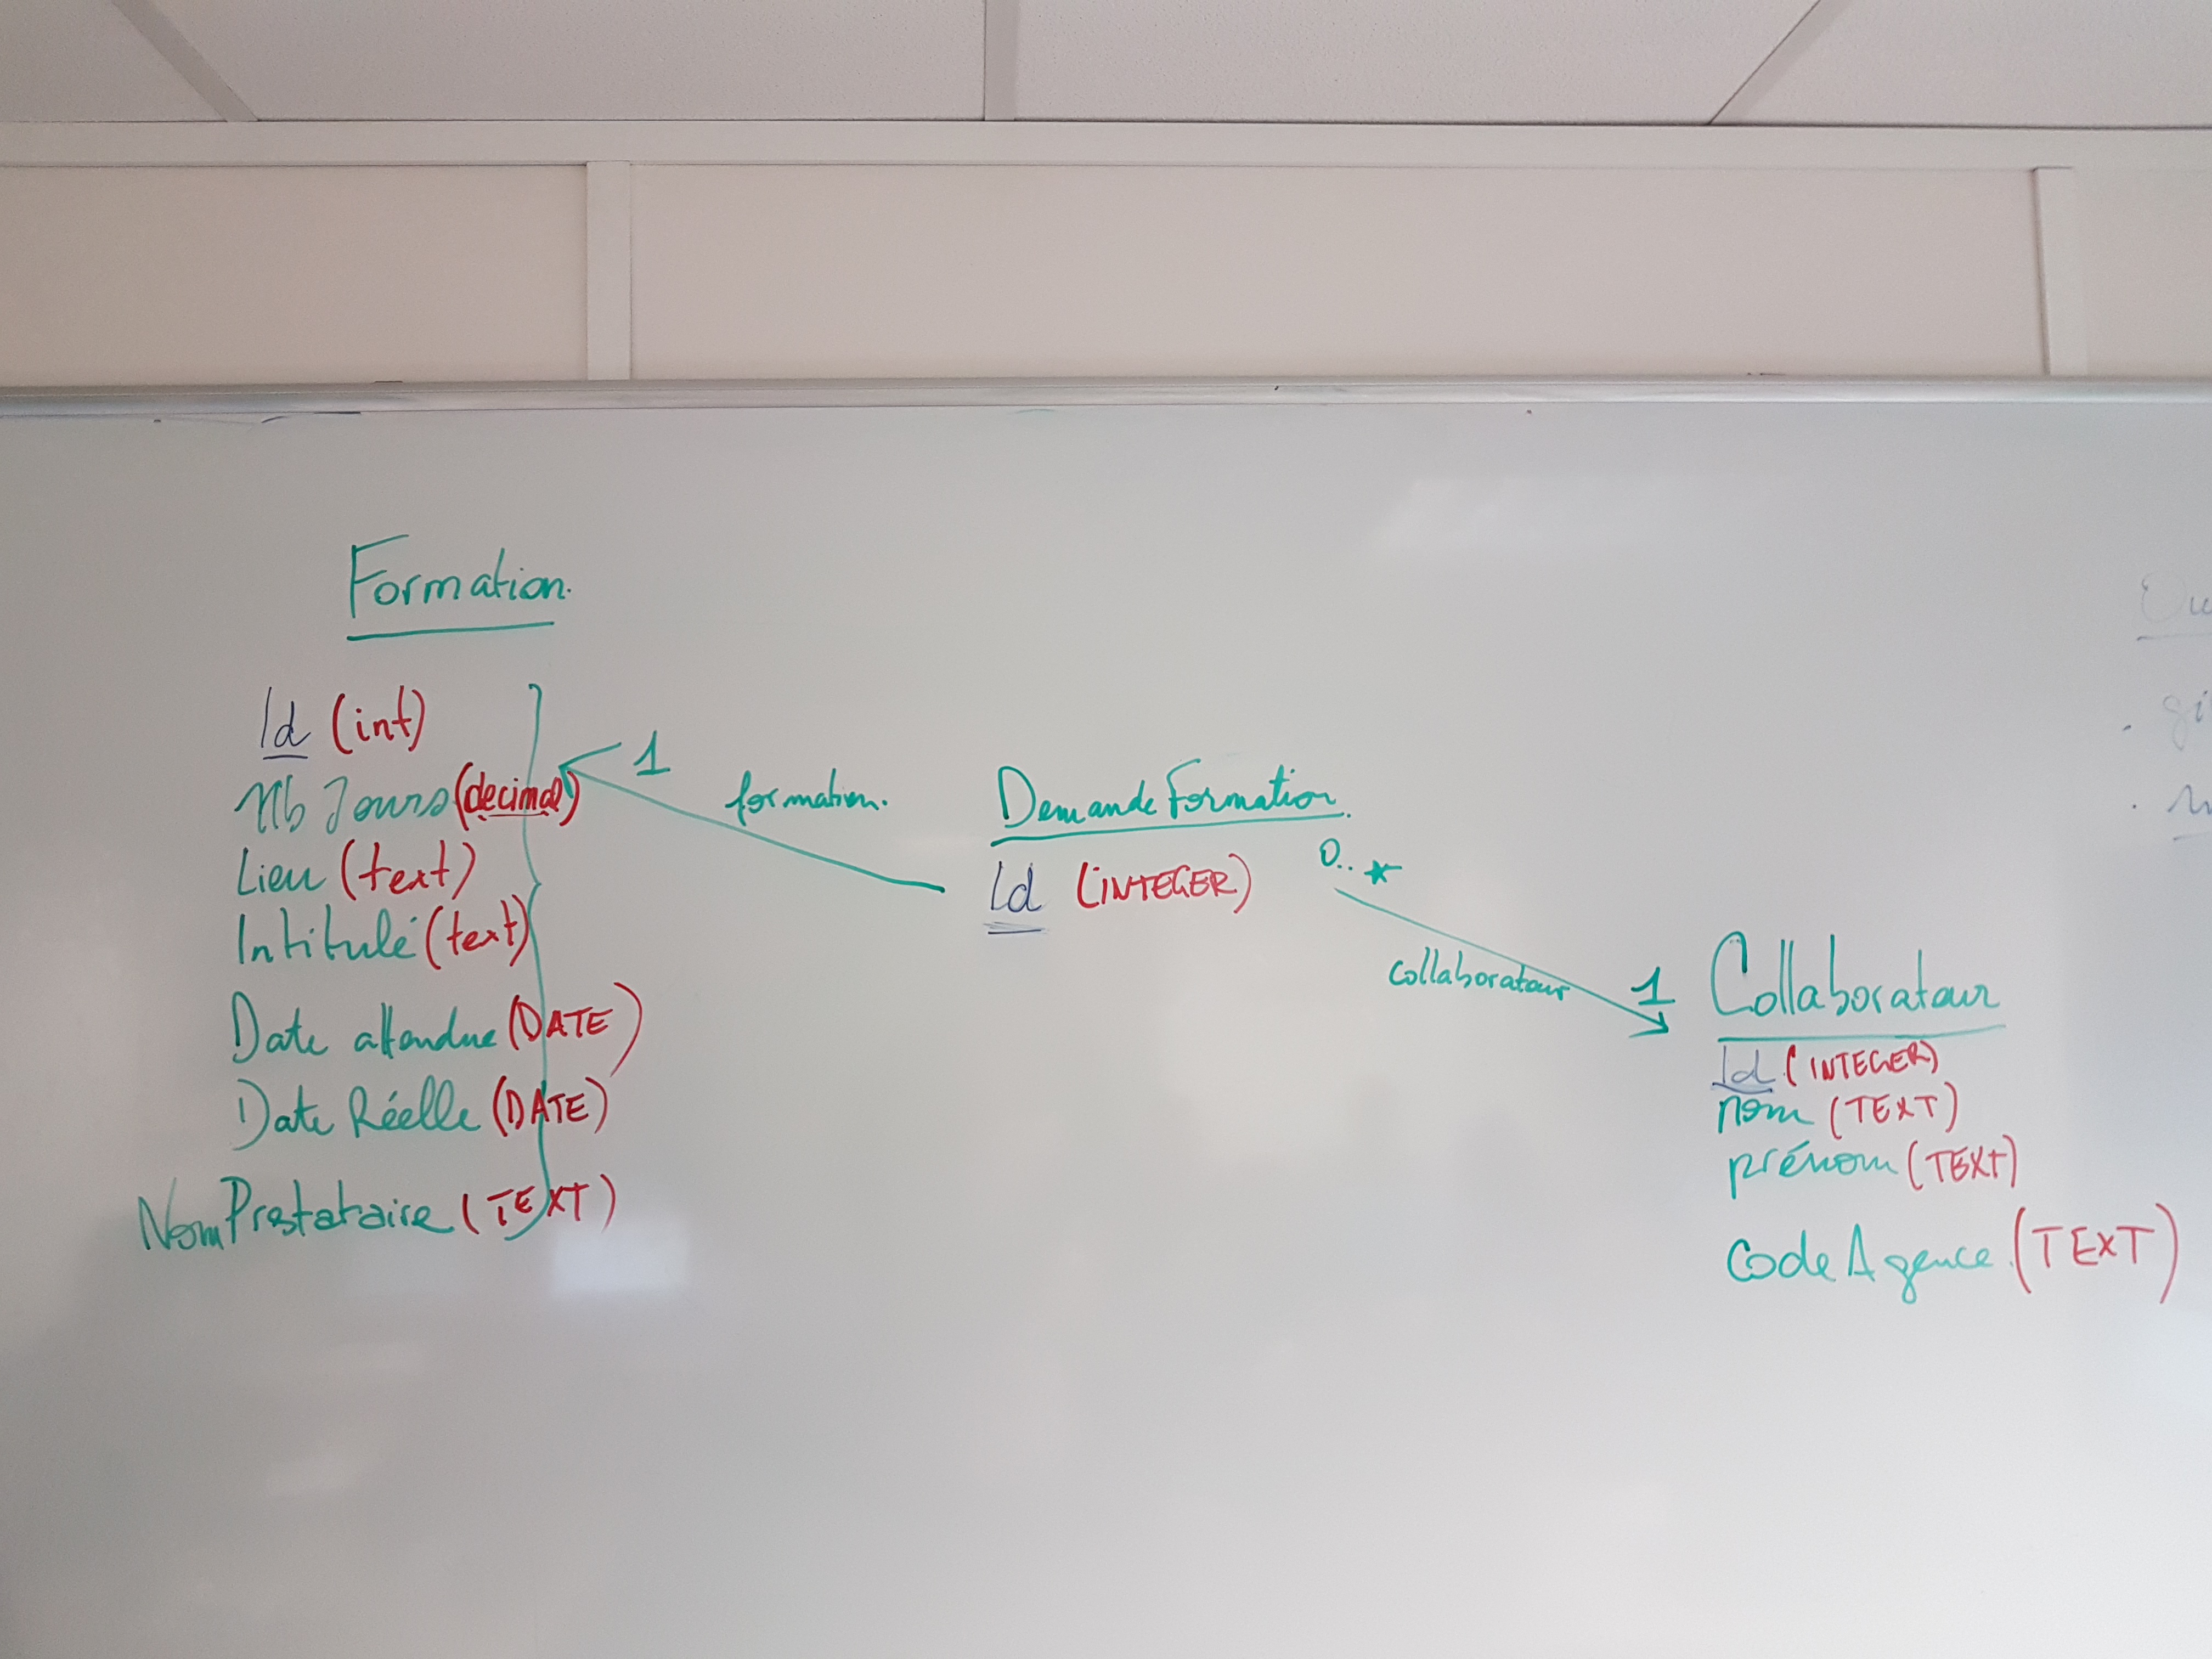 Formation.
Id (int)
Nb Jours (decimal)
Lieu (text)
Intitulé (text)
Date attendue (DATE)
Date Réelle (DATE)
NomPrestataire (TEXT)
1
formation.
DemandeFormation.
Id (INTEGER)
0..*
collaborateur
1
Collaborateur
Id (INTEGER)
nom (TEXT)
prénom (TEXT)
Code Agence (TEXT)